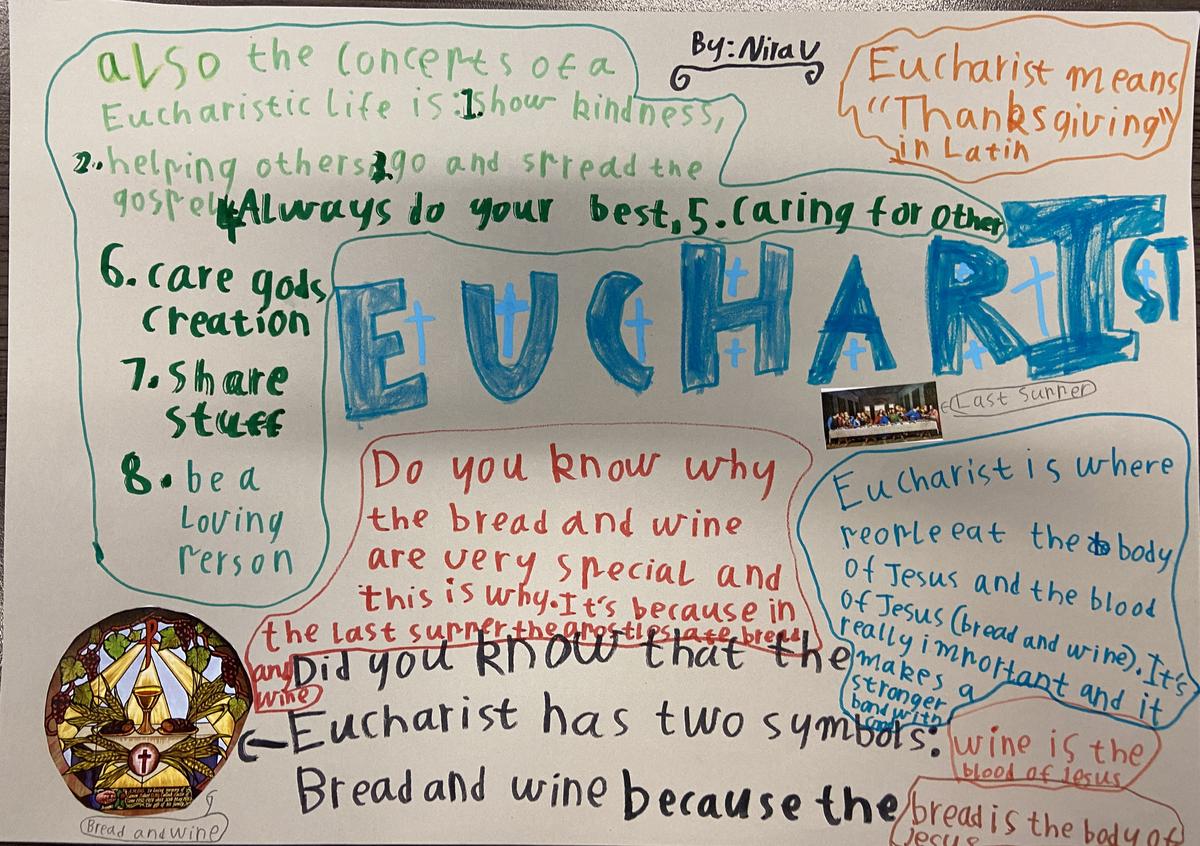 also the concepts of a
Eucharistic Life is:1.show kindness,
2.helping others,3.go and spread the
gospel,4.Always do your best,5.Caring for other
6.care gods
Creation
7.Share
stuff
8.be a
Loving
Person
By:Nirav
Eucharist means
"Thanksgiving"
in Latin
EUCHARIST
Last Supper
Do you know why
the bread and wine
are very special and
this is why.It's because in
the last supper the apostles ate bread
and
wine
Eucharist is where
People eat the body
of Jesus and the blood
of Jesus (bread and wine). It's
really important and it
makes a
stronger
bond with
Did you know that the
Eucharist has two symbols:
Bread and wine because the
wine is the
blood of Jesus
bread is the body of
Jesus
Bread and wine